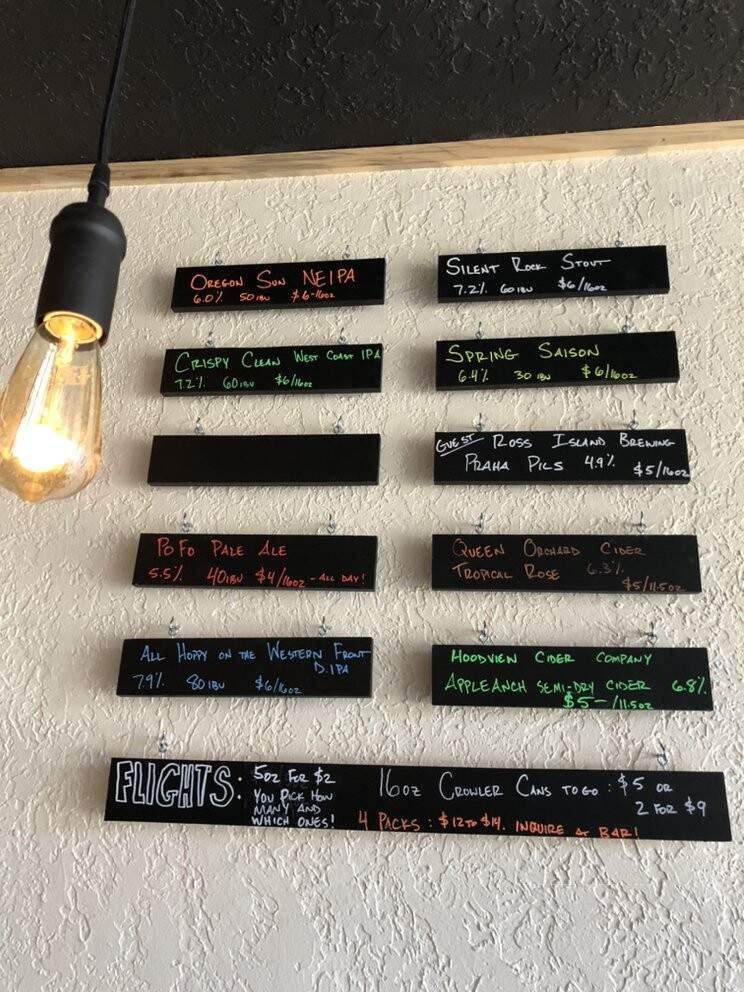 Oregon Sun NEIPA
6.0% 50 IBU $6-16oz
Crispy Clean West Coast IPA
7.2% 60 IBU $6/16oz
PoFo Pale Ale
5.5% 40 IBU $4/16oz - All Day!
All Hoppy on the Western Front
D.IPA
7.9% 80 IBU $6/16oz
Silent Rock Stout
7.2% 60 IBU $6/16oz
Spring Saison
6.4% 30 IBU $6/16oz
Guest Ross Island Brewing
Praha Pils 4.9% $5/16oz
Queen Orchard Cider
Tropical Rose 6.3%
$5/11.5oz
Hoodview Cider Company
AppleAnch Semi-Dry Cider 6.8%
$5-/11.5oz
FLIGHTS: 5oz for $2
You Pick How
Many and
Which Ones!
16oz Crowler Cans to go: $5 or
2 for $9
4 Packs: $12 to $14. Inquire at Bar!